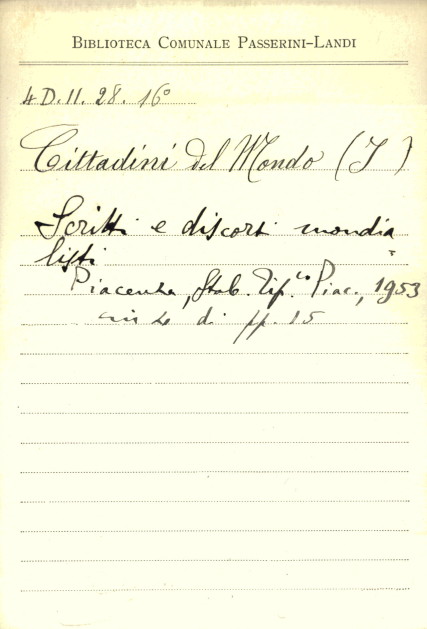 BIBLIOTECA COMUNALE PASSERINI-LANDI
4 D. II. 28. 16°
Cittadini del Mondo (I)
Scritti e discorsi mondia
listi
Piacenza, Stab. Tip.co Piac., 1953
in 4 di pp. 15